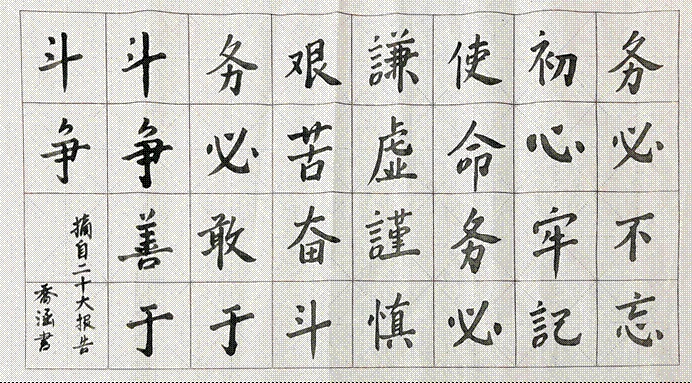 务必不忘
初心牢記
使命务必
謙虚謹慎
艰苦奋斗
务必敢于
斗争善于
斗争
摘自二十大报告
乔涵书